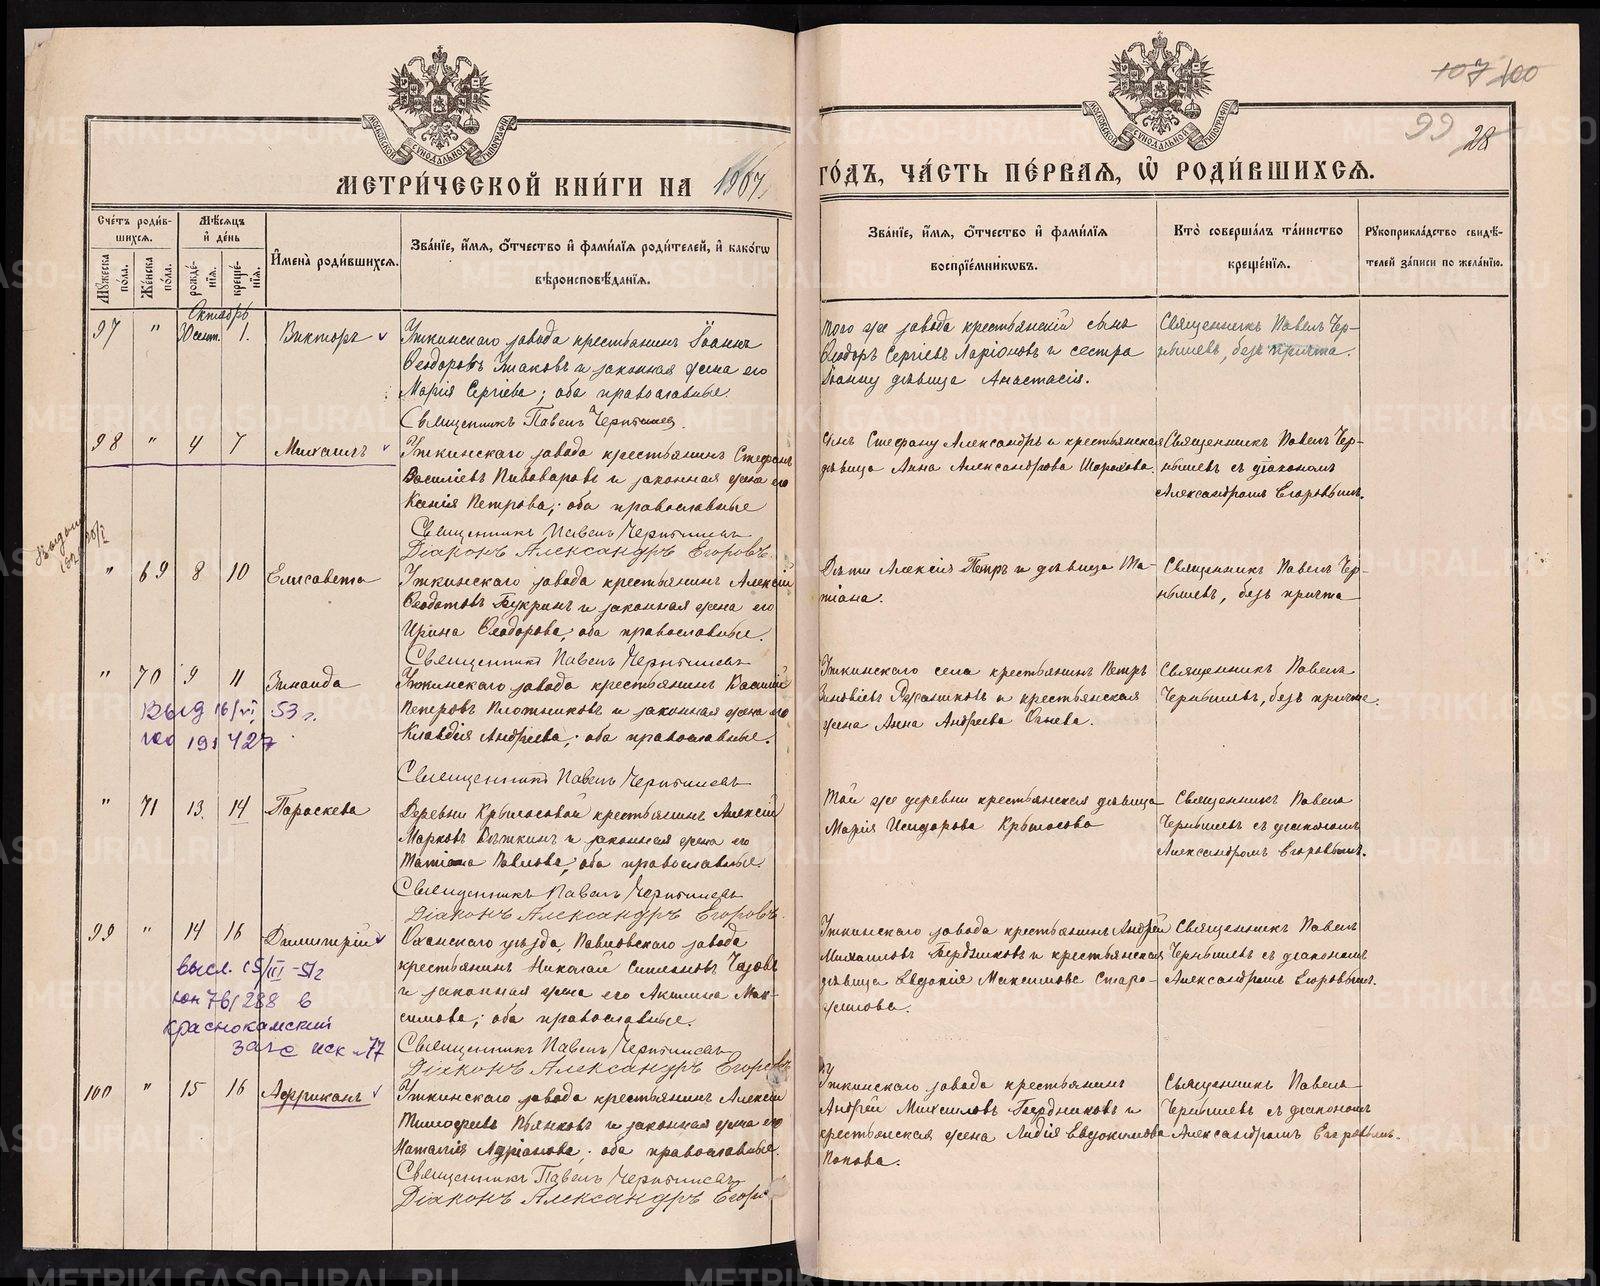 107 100
99 28
МОСКОВСКОЙ СѴНОДАЛЬНОЙ ТИПОГРАФІИ
МОСКОВСКОЙ СѴНОДАЛЬНОЙ ТИПОГРАФІИ
МЕТРИ́ЧЕСКОЙ КНИ́ГИ НА 1907
ГО́ДЪ, ЧА́СТЬ ПЕ́РВАѦ, Ѡ҆ РОДИ́ВШИХСѦ.
Сче́тъ роди́вшихсѧ.
Мꙋ́жеска по́ла.
Же́нска по́ла.
Мѣ́сѧцъ и҆ де́нь
рожде́нїѧ.
креще́нїѧ.
И҆мена̀ роди́вшихсѧ.
Зва́нїе, и҆́мѧ, ѻ҆́тчество и҆ фами́лїѧ роди́телей, и҆ како́гѡ
вѣроисповѣ́данїѧ.
Зва́нїе, и҆́мѧ, ѻ҆́тчество и҆ фами́лїѧ
воспрїе́мникѡвъ.
Кто̀ соверша́лъ та́инство
креще́нїѧ.
Рꙋкоприкла́дство свидѣ́телей за́писи по жела́нїю.
Октябрь
97 " 30 сент. 1. Викторъ
Уткинскаго завода крестьянинъ Іоаннъ
Ѳеодоровъ Ушаковъ и законная жена его
Марія Сергіева; оба православные.
Священникъ Павелъ Чернышевъ.
того же завода крестьянскій сынъ
Ѳеодоръ Сергіевъ Ларіоновъ и сестра
Іоанну дѣвица Анастасія.
Священникъ Павелъ Чер-
нышевъ, безъ причта.
98 " 4 7 Михаилъ
Уткинскаго завода крестьянинъ Стефанъ
Василіевъ Пивоваровъ и законная жена его
Ксенія Петрова; оба православные
Священникъ Павелъ Чернышевъ
Діаконъ Александръ Егоровъ.
сынъ Стефану Александръ и крестьянская
дѣвица Анна Александрова Шорохова.
Священникъ Павелъ Чер-
нышевъ съ діакономъ
Александромъ Егоровымъ.
" 69 8 10 Елисавета
Уткинскаго завода крестьянинъ Алексій
Ѳеодотовъ Букринъ и законная жена его
Ирина Ѳеодорова, оба православные.
Священникъ Павелъ Чернышевъ
Дѣти Алексія Петръ и дѣвица Та-
тіана.
Священникъ Павелъ Чер-
нышевъ, безъ причта
" 70 9 11 Зинаида
Выд 16/VI 53 г.
427
Уткинскаго завода крестьянинъ Василій
Петровъ Плотниковъ и законная жена его
Клавдія Андреева; оба православные.
Священникъ Павелъ Чернышевъ
Уткинскаго села крестьянинъ Петръ
Зиновіевъ и крестьянская
жена Анна Андреева Огнева.
Священникъ Павелъ
Чернышевъ, безъ причта.
" 71 13. 14 Параскева
Деревни Крылосовой крестьянинъ Алексій
Марковъ и законная жена его
Татіана Павлова; оба православные.
Священникъ Павелъ Чернышевъ
Діаконъ Александръ Егоровъ.
Той же деревни крестьянская дѣвица
Марія Исидорова Крылосова
Священникъ Павелъ
Чернышевъ съ діакономъ
Александромъ Егоровымъ.
99 " 14 16 Димитрій
высл. 15/III-52
76/288 в
краснокамский
загс иск 77
Оханскаго уѣзда, Павловскаго завода
крестьянинъ Николай Симеоновъ
и законная жена его Акилина Мак-
симова; оба православные.
Священникъ Павелъ Чернышевъ
Діаконъ Александръ Егоровъ
Уткинскаго завода крестьянинъ Андрей
Михаиловъ Бердниковъ и крестьянская
дѣвица Евдокія Максимова Старо-
Священникъ Павелъ
Чернышевъ съ діакономъ
Александромъ Егоровымъ.
100 " 15 16 Африканъ
Уткинскаго завода крестьянинъ Алексій
Тимоѳеевъ Пьянковъ и законная жена его
Наталія Адріанова; оба православные.
Священникъ Павелъ Чернышевъ
Діаконъ Александръ Егоровъ
Уткинскаго завода крестьянинъ
Андрей Михаиловъ Бердниковъ и
крестьянская жена Лидія Евдокимова
Попова.
Священникъ Павелъ
Чернышевъ съ діакономъ
Александромъ Егоровымъ.
METRIKI.GASO-URAL.RU